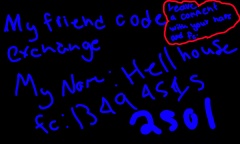 My friend code
exchange
Leave
a comment
with your name
and fc
My Nom: Hell house
fc: 1349 4585
2801